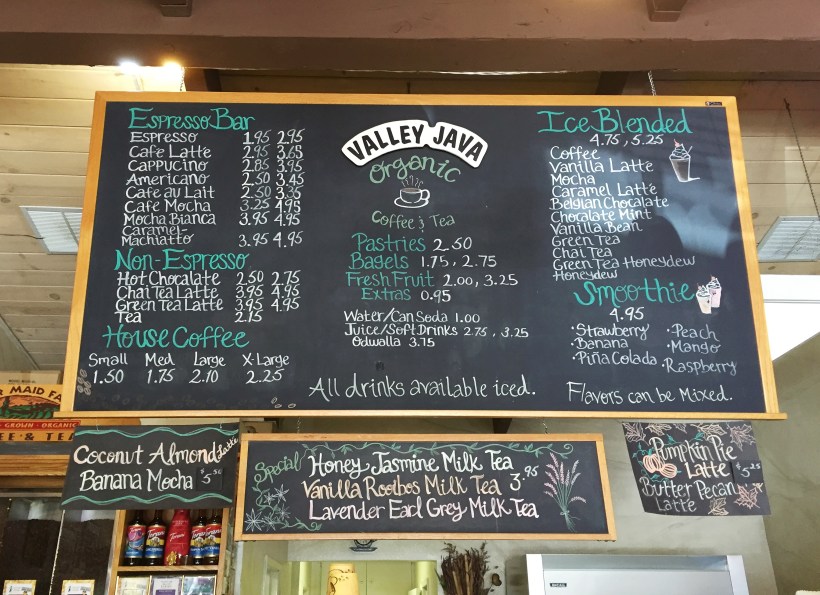 Espresso Bar
Espresso 1.95 2.95
Cafe Latte 2.95 3.65
Cappucino 2.85 3.95
Americano 2.50 3.45
Cafe au Lait 2.50 3.35
Cafe Mocha 3.25 4.95
Mocha Bianca 3.95 4.95
Caramel-
Machiatto 3.95 4.95
Non-Espresso
Hot Chocolate 2.50 2.75
Chai Tea Latte 3.95 4.95
Green Tea Latte 3.95 4.95
Tea 2.15
House Coffee
Small Med Large X-Large
1.50 1.75 2.10 2.25
VALLEY JAVA
Organic
Coffee & Tea
Pastries 2.50
Bagels 1.75, 2.75
Fresh Fruit 2.00, 3.25
Extras 0.95
Water/Can Soda 1.00
Juice/Soft Drinks 2.75, 3.25
Odwalla 3.75
All drinks available iced.
Ice Blended
4.75, 5.25
Coffee
Vanilla Latte
Mocha
Caramel Latte
Belgian Chocolate
Chocolate Mint
Vanilla Bean
Green Tea
Chai Tea
Green Tea Honeydew
Honeydew
Smoothie
4.95
·Strawberry ·Peach
·Banana ·Mango
·Piña Colada ·Raspberry
Flavors can be Mixed.
MAID FA
GROWN · ORGANIC
EE & TEA
Coconut Almond Latte
Banana Mocha $5.50
Special
Honey Jasmine Milk Tea
Vanilla Rooibos Milk Tea 3.95
Lavender Earl Grey Milk Tea
Pumpkin Pie
Latte $5.25
Butter Pecan
Latte
Torani